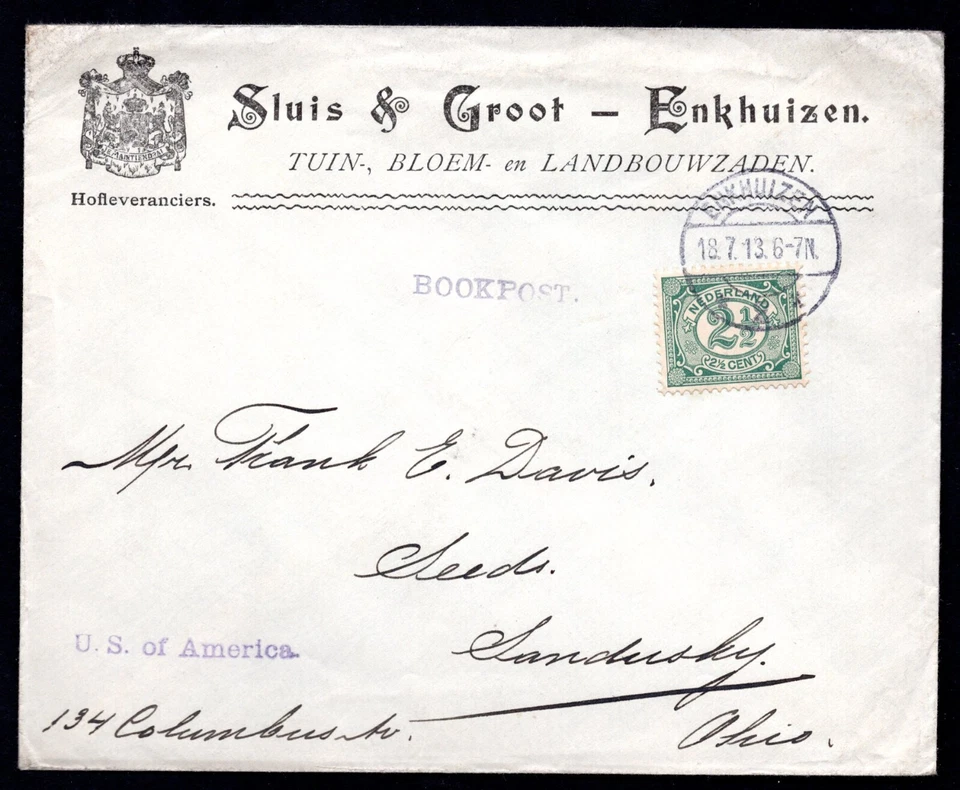 Sluis & Groot — Enkhuizen.
TUIN-, BLOEM- en LANDBOUWZADEN.
JE MAINTIENDRAI
Hofleveranciers.
ENKHUIZEN
18.7.13.6-7N.
BOOKPOST.
NEDERLAND
2½
2½ CENT
Mr. Frank E. Davis.
Seeds.
U. S. of America.
Sandusky.
134 Columbus Av.
Ohio.